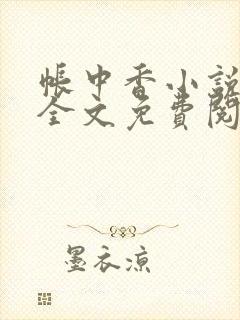 帳中香小說
全文免費閱
墨衣涼